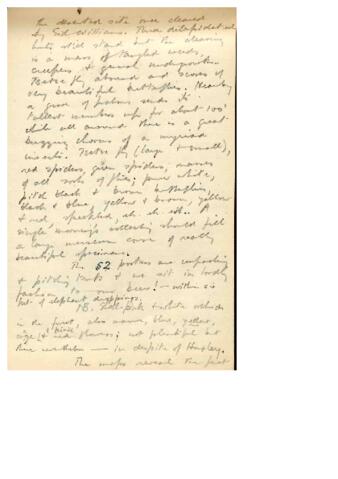 the deserted site once cleared
by Sid Williams. Three dilapidated
huts still stand but the clearing
is a mass of tangled weeds,
creepers & general undergrowth.
Tsetse fly abound and scores of
very beautiful butterflies. Nearby
a grove of palms sends its
tallest members up for about 100'
while all around there is a great
buzzing chorus of a myriad
insects. Tsetse fly (large & small),
red spiders, green spiders, masses
of all sorts of flies; pure white,
pitch black & brown butterflies,
black & blue, yellow & brown, yellow
& red, speckled, etc. etc. etc. A
single morning's collecting should fill
a large museum case of really
beautiful specimens.
The 62 porters are unpacking
& pitching tents & we sit in lordly
fashion to our beers! — within 6
feet of elephant droppings.
N.B. Pale-pink & white orchids
in the forest, also mauve, blue, yellow,
& red flowers; not plentiful but
there nevertheless — in despite of Huxley.
The maps reveal the first